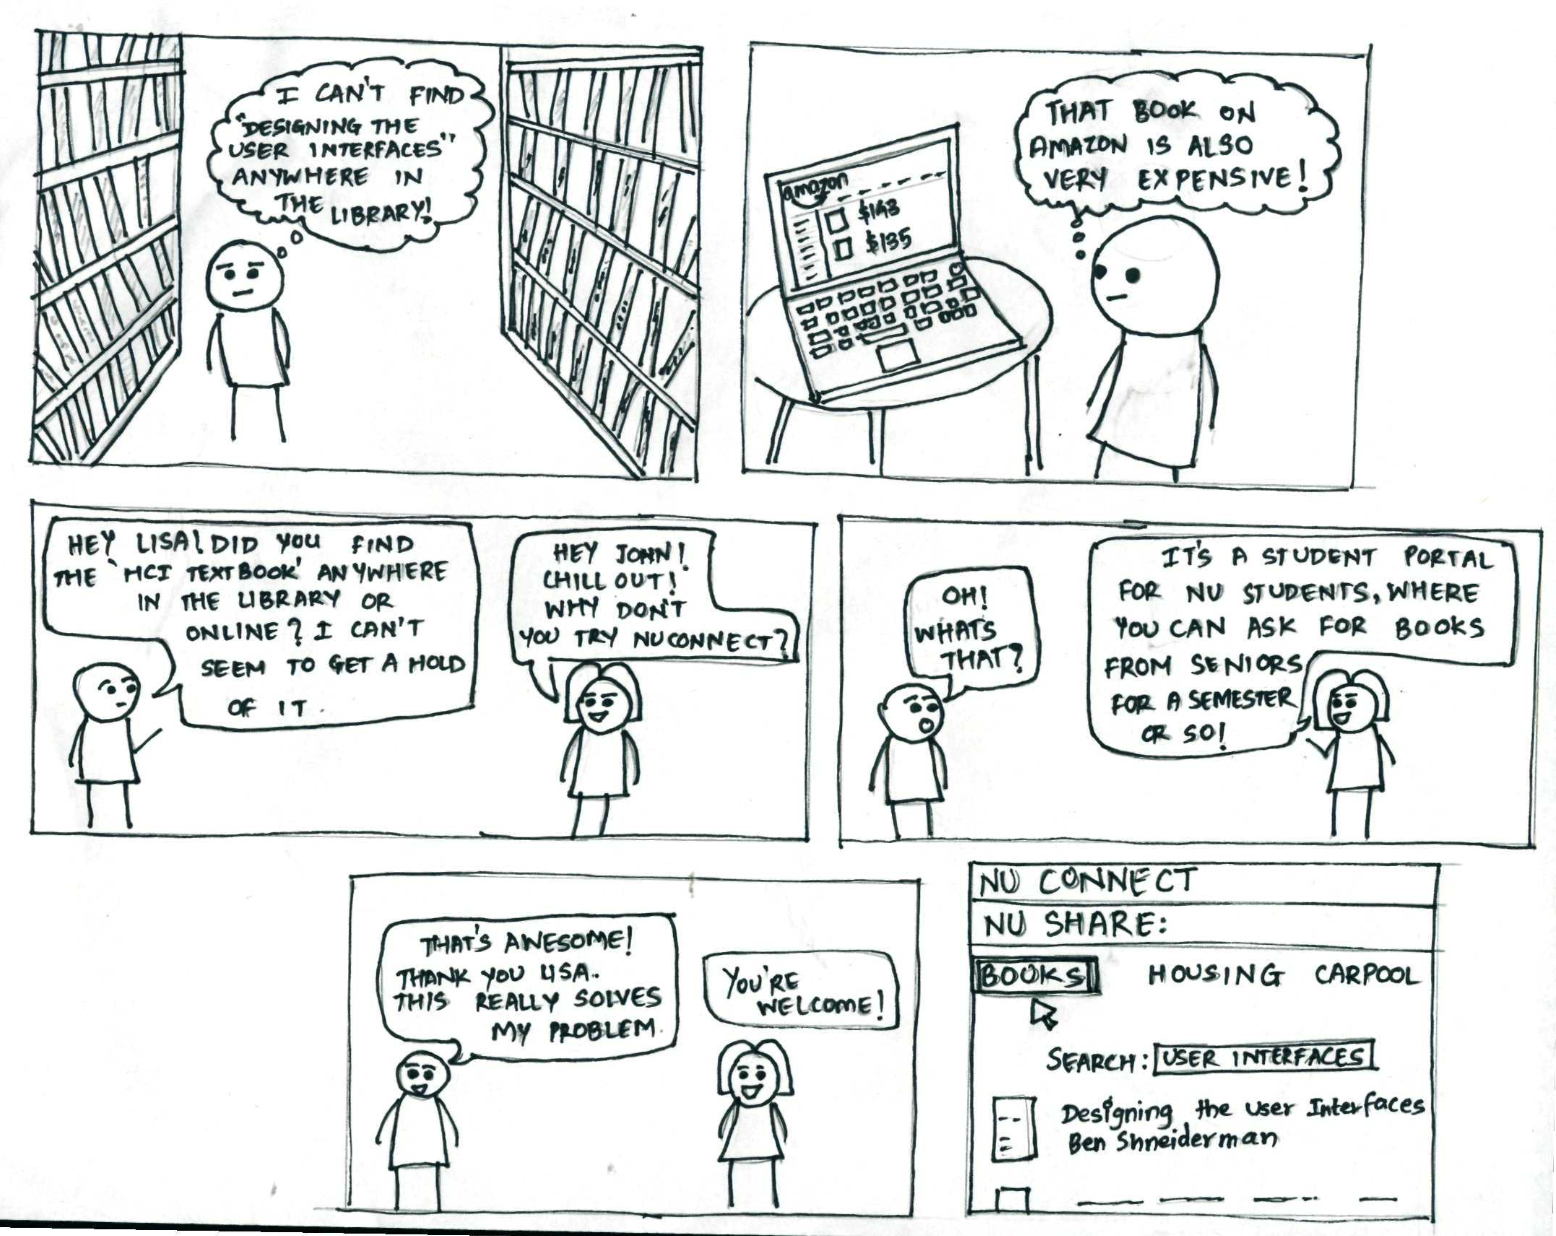 I CAN'T FIND
"DESIGNING THE
USER INTERFACES"
ANYWHERE IN
THE LIBRARY!
THAT BOOK ON
AMAZON IS ALSO
VERY EXPENSIVE!
amazon
$143
$135
HEY LISA! DID YOU FIND
THE 'HCI TEXTBOOK' ANYWHERE
IN THE LIBRARY OR
ONLINE? I CAN'T
SEEM TO GET A HOLD
OF IT.
HEY JOHN!
CHILL OUT!
WHY DON'T
YOU TRY NUCONNECT?
OH!
WHAT'S
THAT?
IT'S A STUDENT PORTAL
FOR NU STUDENTS, WHERE
YOU CAN ASK FOR BOOKS
FROM SENIORS
FOR A SEMESTER
OR SO!
THAT'S AWESOME!
THANK YOU LISA.
THIS REALLY SOLVES
MY PROBLEM.
YOU'RE
WELCOME!
NU CONNECT
NU SHARE:
BOOKS HOUSING CARPOOL
SEARCH: USER INTERFACES
Designing the User Interfaces
Ben Shneiderman